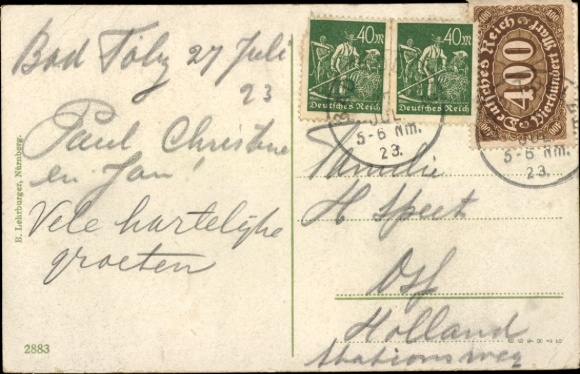 Bad Tölz 27 Juli
23
Paul Christine
en Jan!
Vele hartelijke
groeten
B. Lehrburger, Nürnberg.
2883
40 M
Deutsches Reich
40 M
Deutsches Reich
Deutsches Reich
400
Vierhundert Mark
JUL
5-6 Nm.
23.
5-6 Nm.
23.
Familie
H Speet
Oss
Holland
Stationsweg